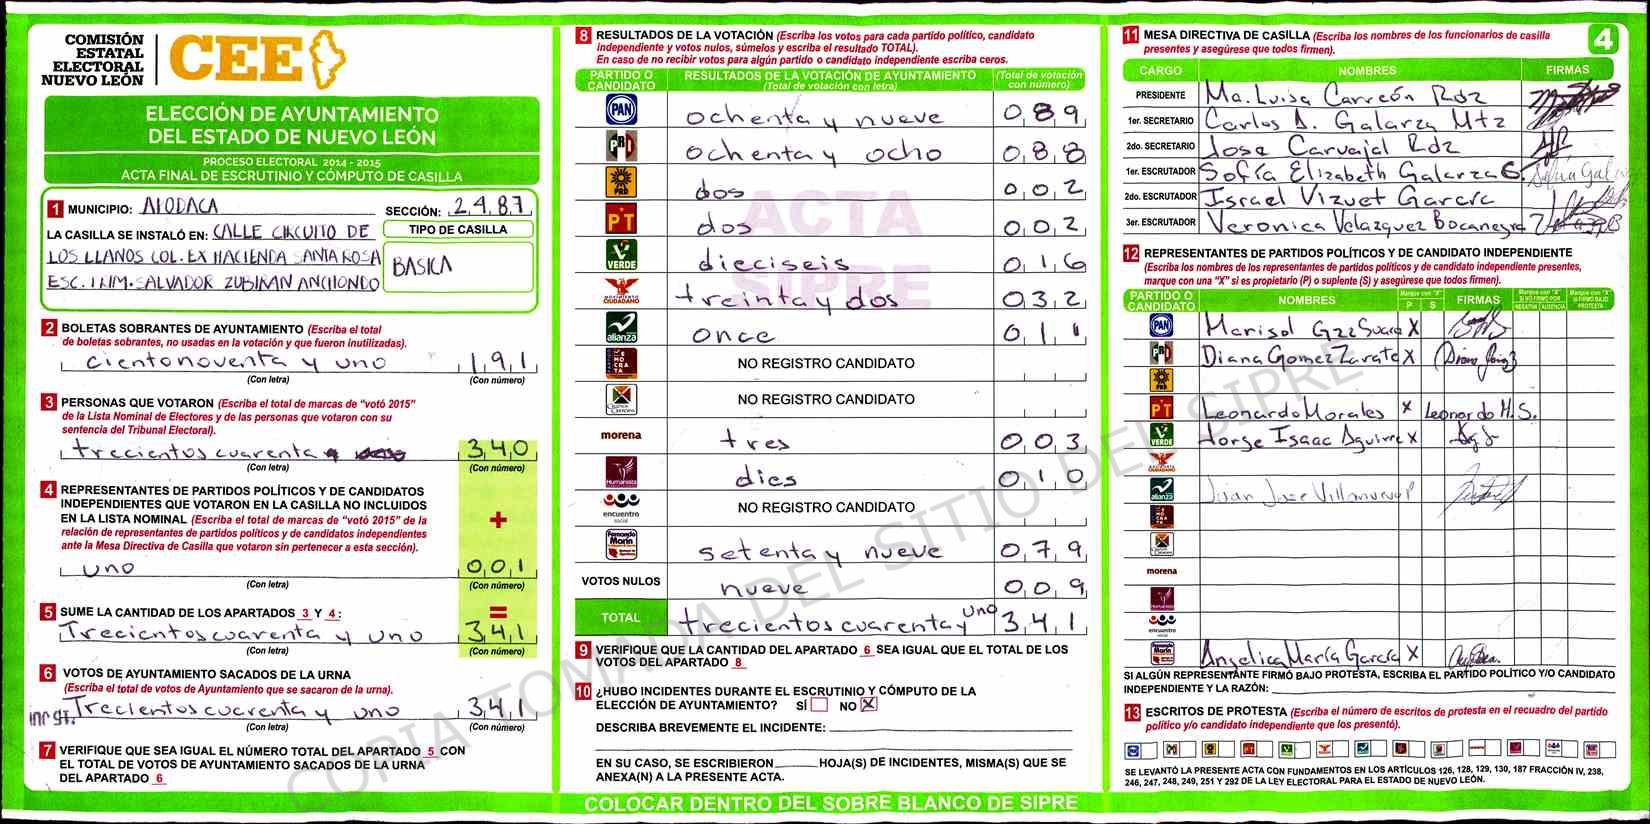 COMISIÓN
ESTATAL
ELECTORAL
NUEVO LEÓN
CEE
ELECCIÓN DE AYUNTAMIENTO
DEL ESTADO DE NUEVO LEÓN
PROCESO ELECTORAL 2014 - 2015
ACTA FINAL DE ESCRUTINIO Y CÓMPUTO DE CASILLA
1 MUNICIPIO: APODACA SECCIÓN: 2,4,8,7
LA CASILLA SE INSTALÓ EN: CALLE CIRCUITO DE
LOS LLANOS COL. EX HACIENDA SANTA ROSA
ESC. PRIM. SALVADOR ZUBIRAN ANCHONDO
TIPO DE CASILLA
BASICA
2 BOLETAS SOBRANTES DE AYUNTAMIENTO (Escriba el total
de boletas sobrantes, no usadas en la votación y que fueron inutilizadas).
cientonoventa y uno 1,9,1
(Con letra) (Con número)
3 PERSONAS QUE VOTARON (Escriba el total de marcas de “votó 2015”
de la Lista Nominal de Electores y de las personas que votaron con su
sentencia del Tribunal Electoral).
trecientos cuarenta 3,4,0
(Con letra) (Con número)
4 REPRESENTANTES DE PARTIDOS POLÍTICOS Y DE CANDIDATOS
INDEPENDIENTES QUE VOTARON EN LA CASILLA NO INCLUIDOS
EN LA LISTA NOMINAL (Escriba el total de marcas de “votó 2015” de la
relación de representantes de partidos políticos y de candidatos independientes
ante la Mesa Directiva de Casilla que votaron sin pertenecer a esta sección).
+
uno 0,0,1
(Con letra) (Con número)
5 SUME LA CANTIDAD DE LOS APARTADOS 3 Y 4: =
Trecientos cuarenta y uno 3,4,1
(Con letra) (Con número)
6 VOTOS DE AYUNTAMIENTO SACADOS DE LA URNA
(Escriba el total de votos de Ayuntamiento que se sacaron de la urna).
Trecientos cuarenta y uno 3,4,1
(Con letra) (Con número)
7 VERIFIQUE QUE SEA IGUAL EL NÚMERO TOTAL DEL APARTADO 5 CON
EL TOTAL DE VOTOS DE AYUNTAMIENTO SACADOS DE LA URNA
DEL APARTADO 6
8 RESULTADOS DE LA VOTACIÓN (Escriba los votos para cada partido político, candidato
independiente y votos nulos, súmelos y escriba el resultado TOTAL).
En caso de no recibir votos para algún partido o candidato independiente escriba ceros.
PARTIDO O CANDIDATO RESULTADOS DE LA VOTACIÓN DE AYUNTAMIENTO (Total de votación con letra) (Total de votación con número)
PAN ochenta y nueve 0,8,9
PRD ochenta y ocho 0,8,8
PRD dos 0,0,2
PT dos 0,0,2
VERDE dieciseis 0,1,6
MOVIMIENTO CIUDADANO treinta y dos 0,3,2
alianza once 0,1,1
NO REGISTRO CANDIDATO
NO REGISTRO CANDIDATO
morena tres 0,0,3
Humanista dies 0,1,0
encuentro social NO REGISTRO CANDIDATO
Fernando Marín setenta y nueve 0,7,9
VOTOS NULOS nueve 0,0,9
TOTAL trecientos cuarenta y uno 3,4,1
ACTA
SIPRE
9 VERIFIQUE QUE LA CANTIDAD DEL APARTADO 6 SEA IGUAL QUE EL TOTAL DE LOS
VOTOS DEL APARTADO 8
10 ¿HUBO INCIDENTES DURANTE EL ESCRUTINIO Y CÓMPUTO DE LA
ELECCIÓN DE AYUNTAMIENTO? SÍ NO X
DESCRIBA BREVEMENTE EL INCIDENTE:
EN SU CASO, SE ESCRIBIERON HOJA(S) DE INCIDENTES, MISMA(S) QUE SE
ANEXA(N) A LA PRESENTE ACTA.
COLOCAR DENTRO DEL SOBRE BLANCO DE SIPRE
11 MESA DIRECTIVA DE CASILLA (Escriba los nombres de los funcionarios de casilla
presentes y asegúrese que todos firmen).
4
CARGO NOMBRES FIRMAS
PRESIDENTE Ma. Luisa Carreón Rdz
1er. SECRETARIO Carlos A. Galarza Mtz
2do. SECRETARIO Jose Carvajal Rdz
1er. ESCRUTADOR Sofía Elizabeth Galarza G.
2do. ESCRUTADOR Israel Vizuet García
3er. ESCRUTADOR Veronica Velazquez Bocanegra
12 REPRESENTANTES DE PARTIDOS POLÍTICOS Y DE CANDIDATO INDEPENDIENTE
(Escriba los nombres de los representantes de partidos políticos y de candidato independiente presentes,
marque con una “X” si es propietario (P) o suplente (S) y asegúrese que todos firmen).
PARTIDO O CANDIDATO NOMBRES Marque con “X” P S FIRMAS Marque con “X” SI NO FIRMÓ POR NEGATIVA AUSENCIA Marque con “X” SI FIRMÓ BAJO PROTESTA
PAN Marisol Gzz Suarez X
Diana Gomez Zarate X
PRD
PT Leonardo Morales X Leonardo M.S.
VERDE Jorge Isaac Aguirre X
alianza Juan Jose Villanueva P
morena
encuentro social
Angelica María García X
SI ALGÚN REPRESENTANTE FIRMÓ BAJO PROTESTA, ESCRIBA EL PARTIDO POLÍTICO Y/O CANDIDATO
INDEPENDIENTE Y LA RAZÓN:
13 ESCRITOS DE PROTESTA (Escriba el número de escritos de protesta en el recuadro del partido
político y/o candidato independiente que los presentó).
SE LEVANTÓ LA PRESENTE ACTA CON FUNDAMENTOS EN LOS ARTÍCULOS 126, 128, 129, 130, 187 FRACCIÓN IV, 238,
246, 247, 248, 249, 251 Y 292 DE LA LEY ELECTORAL PARA EL ESTADO DE NUEVO LEÓN.
COPIA TOMADA DEL SITIO DEL SIPRE